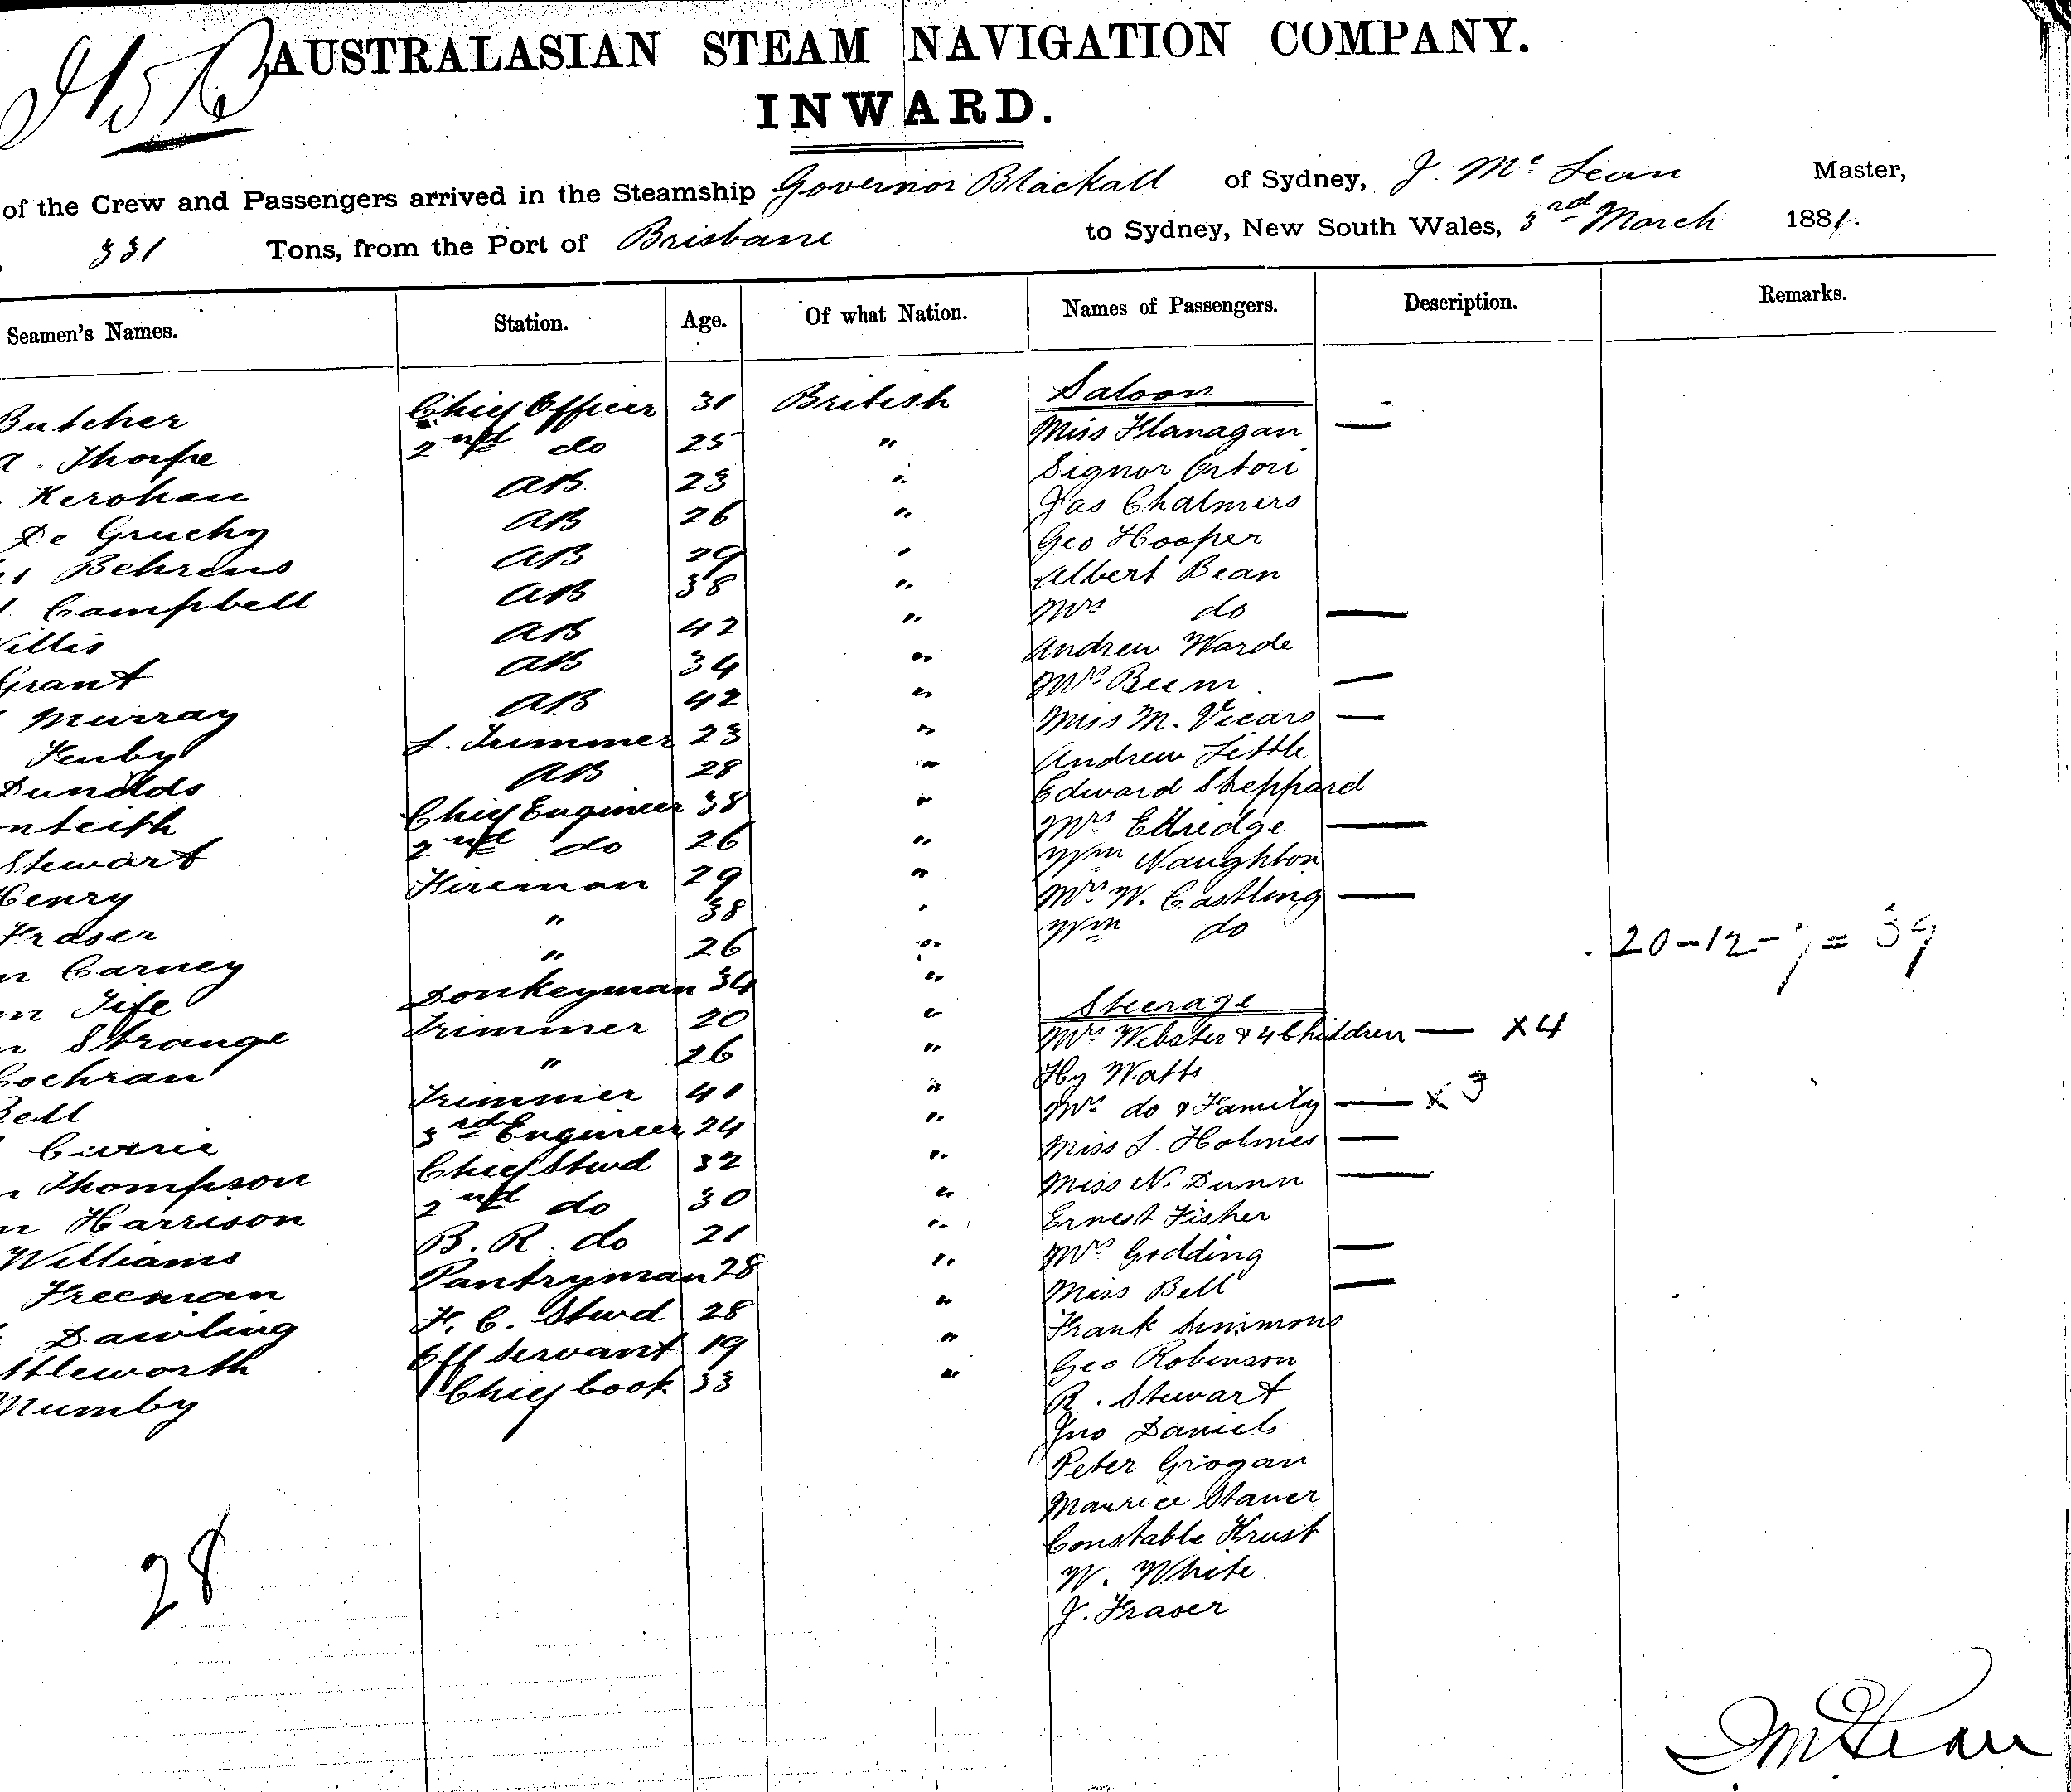 AUSTRALASIAN STEAM NAVIGATION COMPANY.
INWARD.
of the Crew and Passengers arrived in the Steamship Governor Blackall of Sydney, J. Mc Lean Master,
331 Tons, from the Port of Brisbane to Sydney, New South Wales, 3rd March 1881.
Seamen's Names. Station. Age. Of what Nation. Names of Passengers. Description. Remarks.
Saloon
Butcher Chief Officer 31 British Miss Flanagan —
a. Thorpe 2nd do 25 " Signor Ortori
Kerohan AB. 23 " Jas Chalmers
De Gruchy AB 26 " Geo Hooper
Behrens AB 29 " Albert Bean
Campbell AB 38 " Mrs do —
illis AB 42 " Andrew Warde
Grant AB 34 " Mrs Beem —
Murray AB 42 " Miss M. Vicars —
Fenby L. Trimmer 23 " Andrew Little
Dunolds AB 28 " Edward Sheppard
nteith Chief Engineer 38 " Mrs Eldredge —
Stewart 2nd do 26 " Wm Naughton
Henry Fireman 29 " Mrs W. Castling —
Fraser " 38 " Wm do
n Carney " 26 "
20-12-7= 39
n Fife Donkeyman 34 " Steerage
n Strange Trimmer 20 " Mrs Webster & 4 Children — x4
Cochran " 26 " Hy Watts
Bell Trimmer 40 " Mrs do & Family — x 3
Currie 3rd Engineer 24 " Miss L. Holmes —
Thompson Chief Stwd 32 " Miss N. Dunn —
n Harrison 2nd do 30 " Ernest Fisher
Williams B. R. do 21 " Mrs Godding —
Freeman Pantryman 28 " Miss Bell —
Dawling F. C. Stwd 28 " Frank Simmons
ttleworth Off Servant 19 " Geo Robinson
Mumby Chief Cook 33 " R. Stewart
Jno Daniels
Peter Grogan
Maurice Stauer
Constable Thrust
W. White.
J. Fraser
28
J McLean